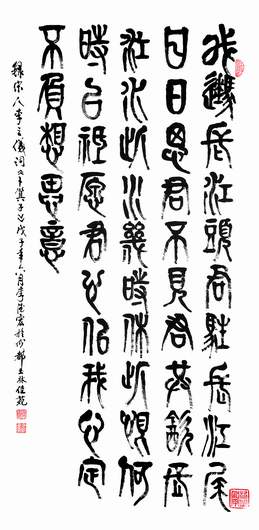 我長江頭君駐長江尾
日日思君不見君共飲長
江水此水幾時休此恨何
時已祗愿君心佀我心定
不負想思意
錄宋人李之儀詞卜算子戊子年月李宏於成都玉林佳苑